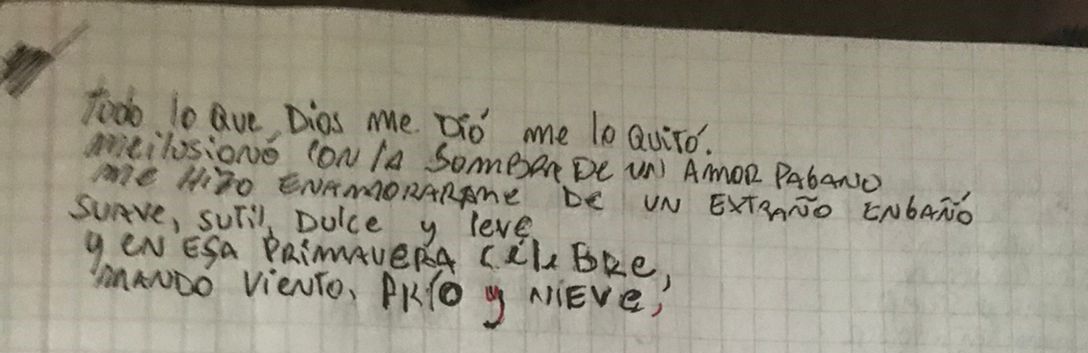 todo lo Que Dios me Dió me lo Quitó.
meilusionó CON lA SOMBRA DE UN AMOR PAGANO
me HIZO ENAMORARAME DE UN EXTRAÑO ENGAÑÓ
SUAVE, SUTIL, DULCE y leve
y EN ESA PRIMAVERA CÉLEBRE,
MANDÓ VIENTO, FRÍO y NIEVE,